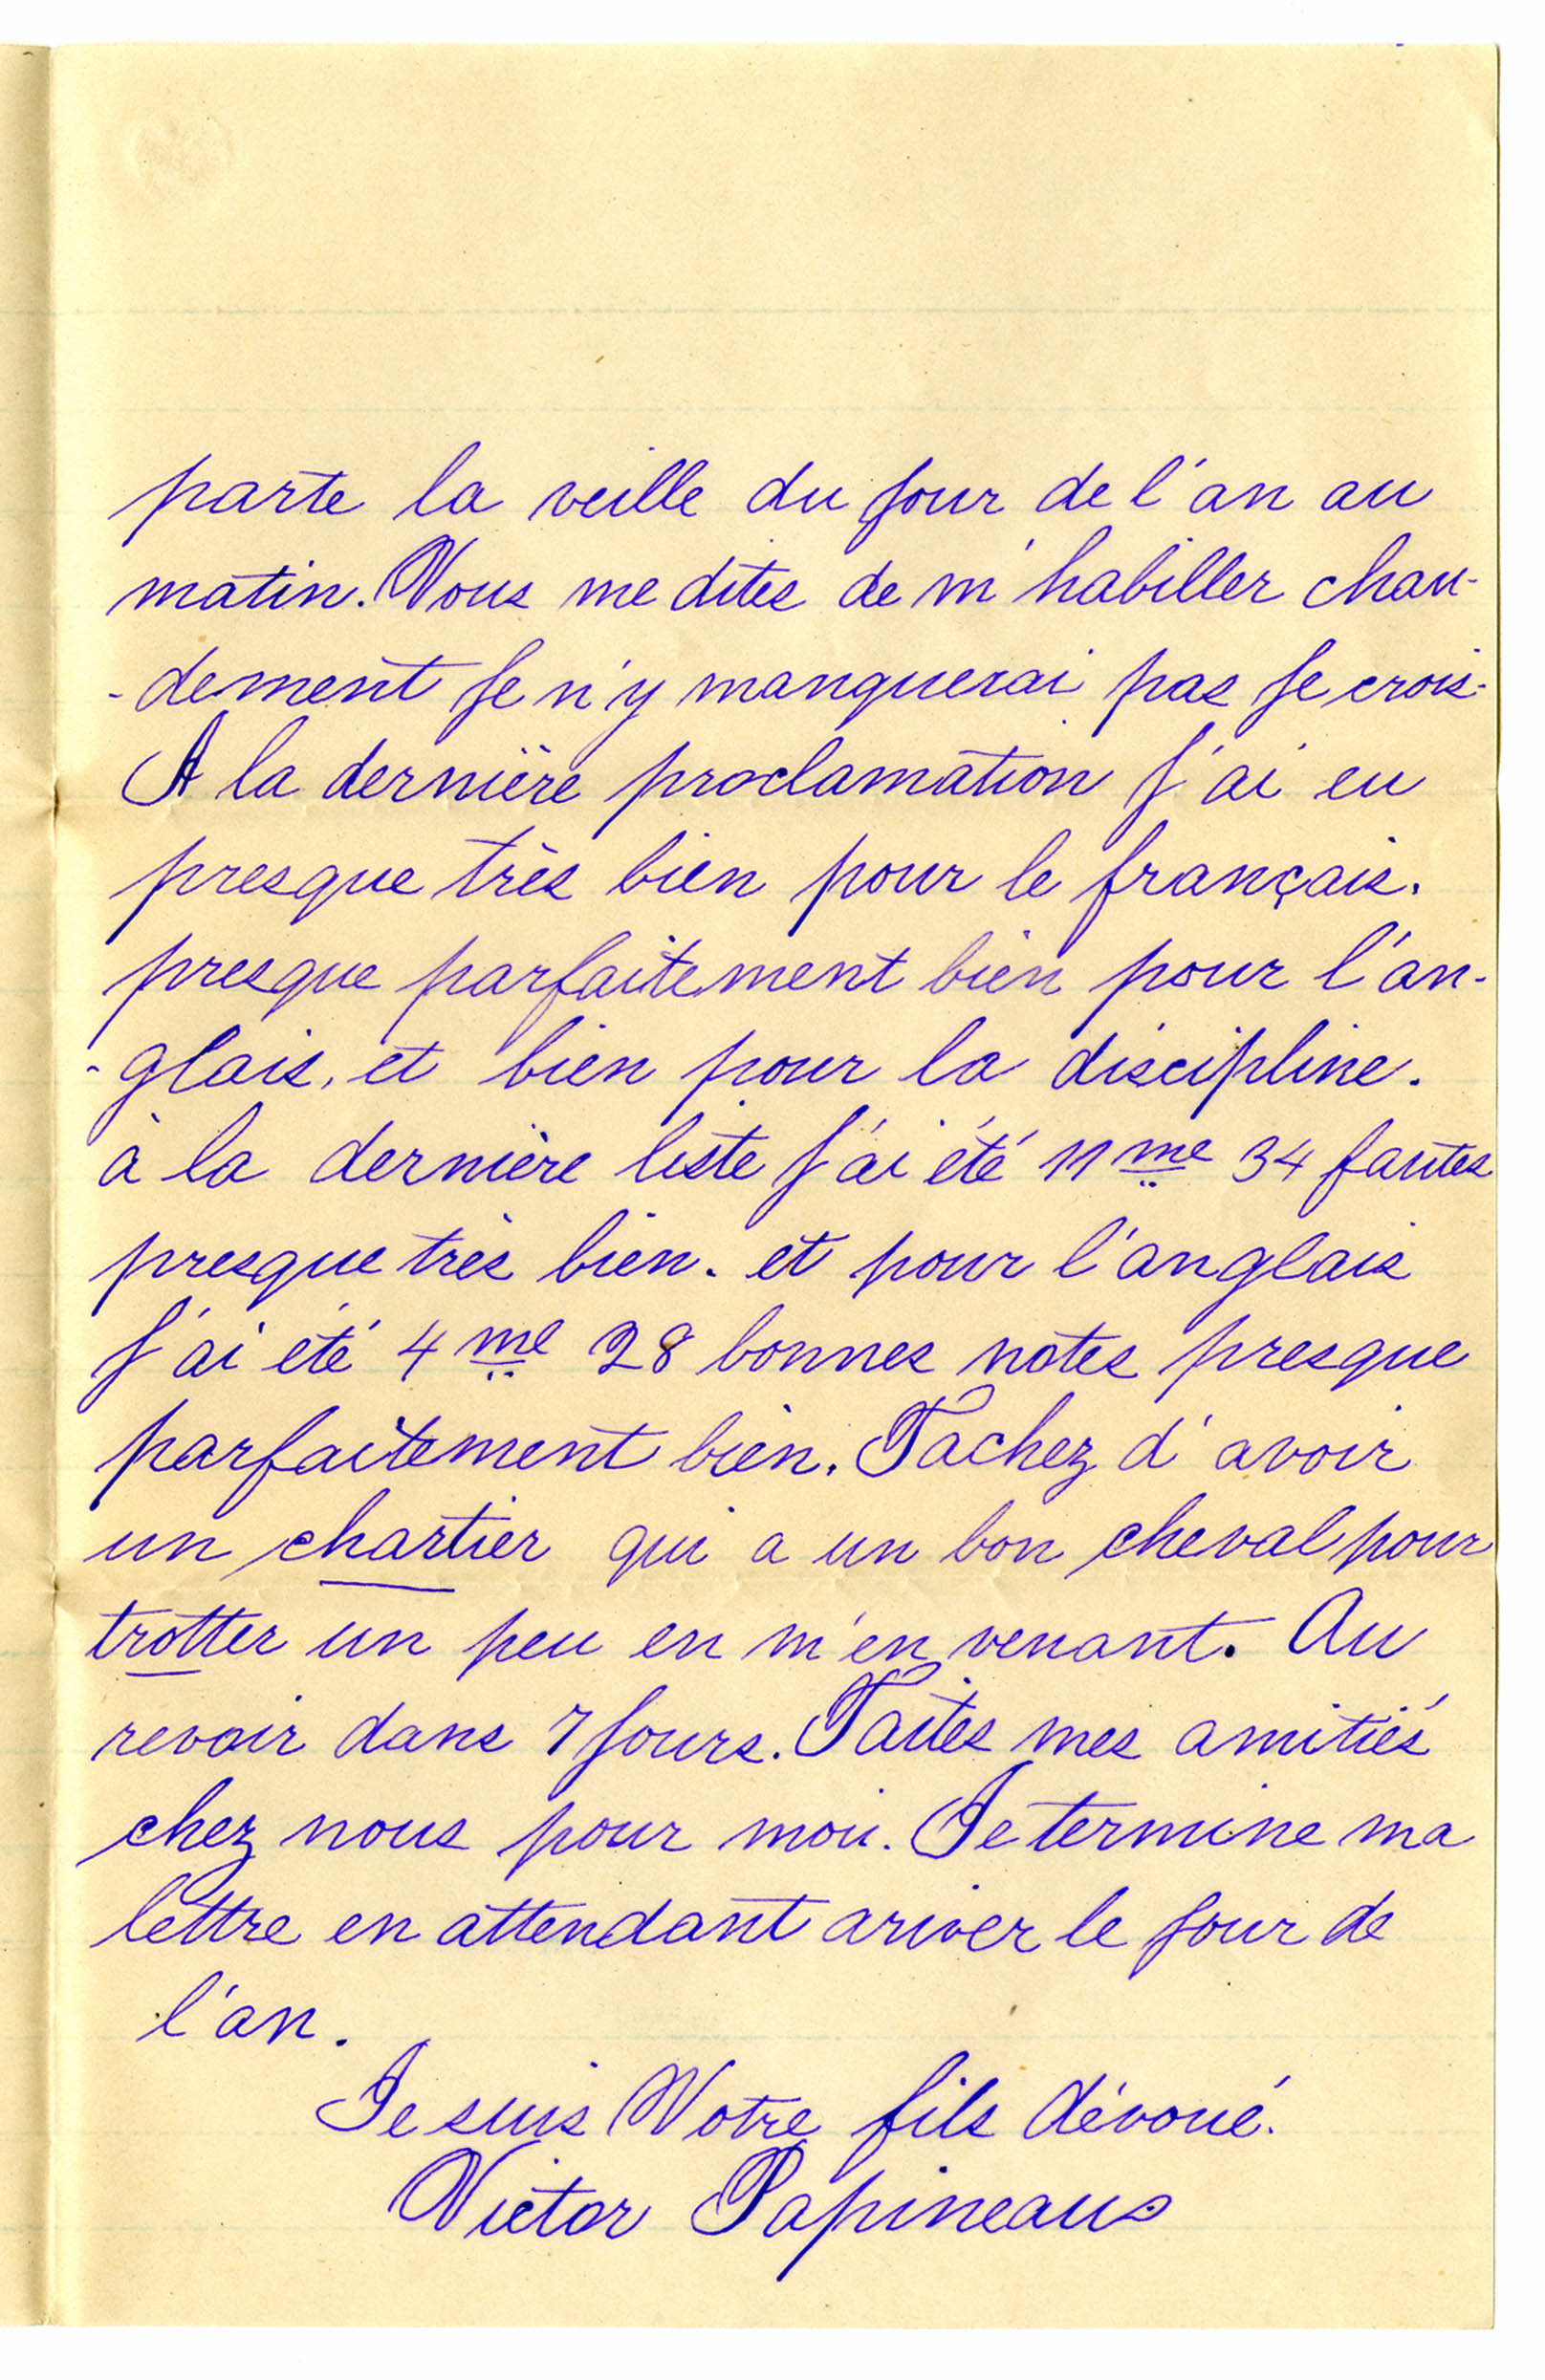 parte la veille du jour de l'an au
matin. Vous me dites de m'habiller chau-
-dement je n'y manquerai pas je crois.
A la dernière proclamation j'ai eu
presque très bien pour le français.
presque parfaitement bien pour l'an-
-glais, et bien pour la discipline.
à la dernière liste j'ai été 11me 34 fautes
presque très bien. et pour l'anglais
j'ai été 4me 28 bonnes notes presque
parfaitement bien. Tachez d'avoir
un chartier qui a un bon cheval pour
trotter un peu en m'en venant. Au
revoir dans 7 jours. Faites mes amitiés
chez nous pour moi. Je termine ma
lettre en attendant ariver le jour de
l'an.
Je suis Votre fils dévoué.
Victor Papineau